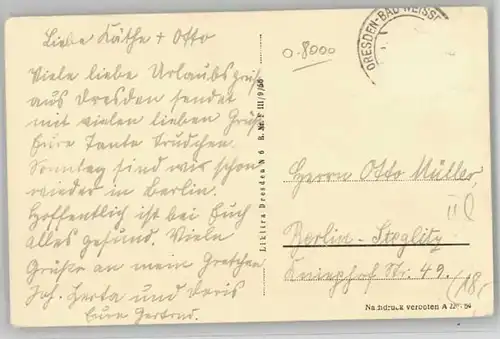 Liebe Käthe + Otto
Viele liebe Urlaubsgrüße
aus Dresden sendet
mit vielen lieben Grüßen
Eure Tante Trudchen.
Sonntag sind wir schon
wieder in Berlin.
Hoffentlich ist bei Euch
alles gesund. Viele
Grüße an mein Gretchen
Joh. Herta und Doris
Eure Gertrud.
o-8000
DRESDEN-BAD WEISSE
Herrn Otto Müller,
Berlin-Steglitz
Kniephof Str. 49.
(18)
Likitra Dresden N 6 R. Nr. F III/9/56
Nachdruck verboten A